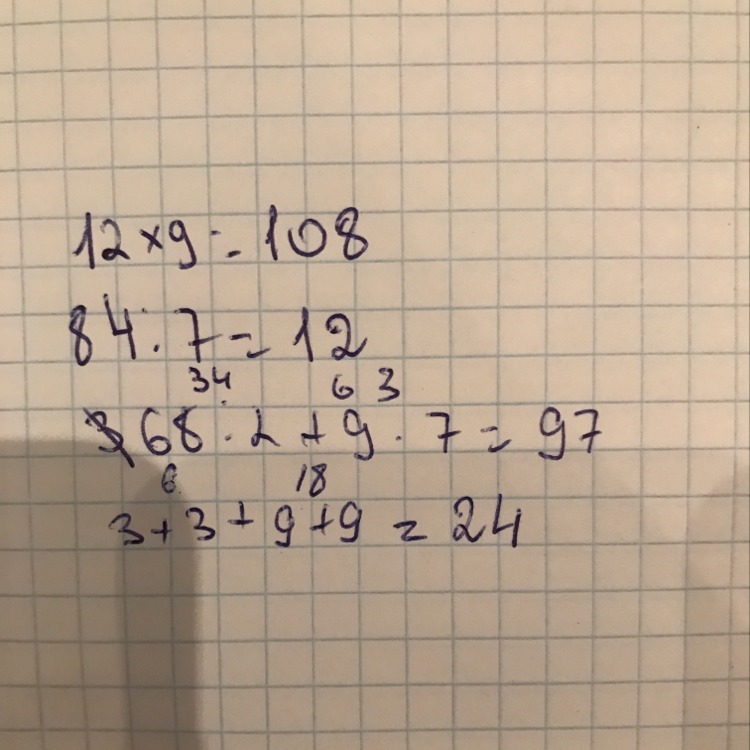 12 × 9 = 108
84 : 7 = 12
34 63
68 : 2 + 9 · 7 = 97
6 18
3 + 3 + 9 + 9 = 24